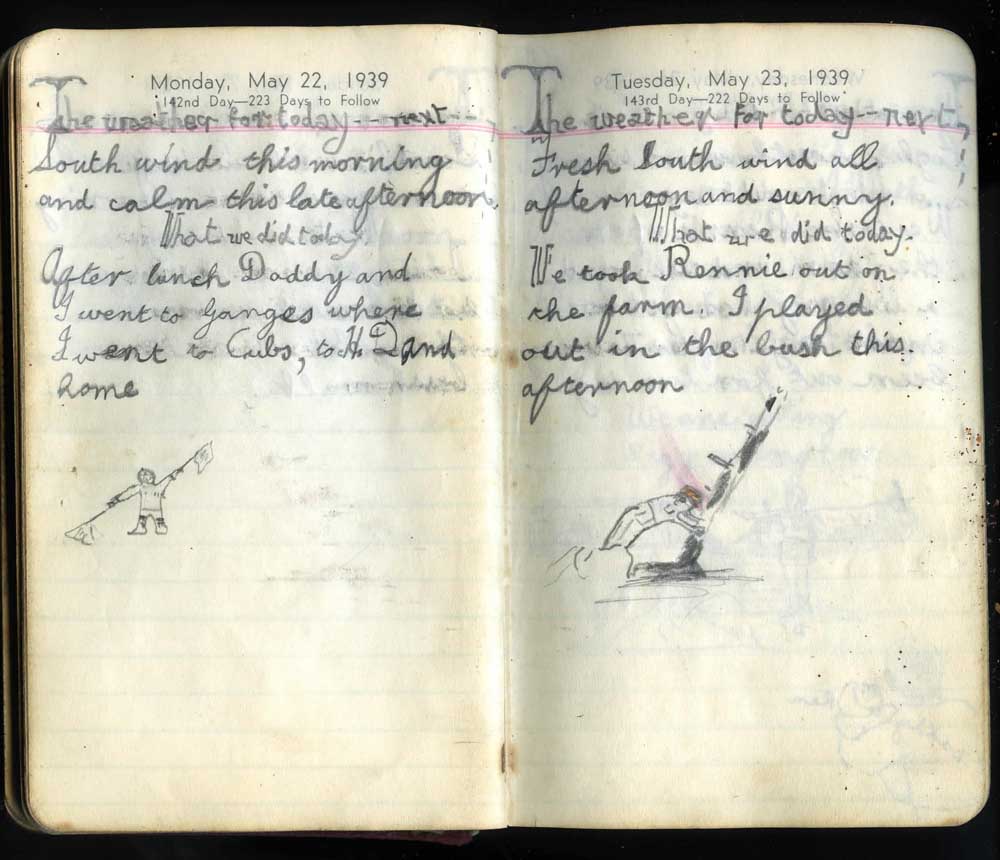 Monday, May 22, 1939
142nd Day—223 Days to Follow
The weather for today -- next --
South wind this morning
and calm this late afternoon.
What we did today.
After lunch Daddy and
I went to Ganges where
I went to Cubs, to H. D and
home
Tuesday, May 23, 1939
143rd Day—222 Days to Follow
The weather for today -- next,
Fresh South wind all
afternoon and sunny.
What we did today.
We took Rennie out on
the farm. I played
out in the bush this.
afternoon